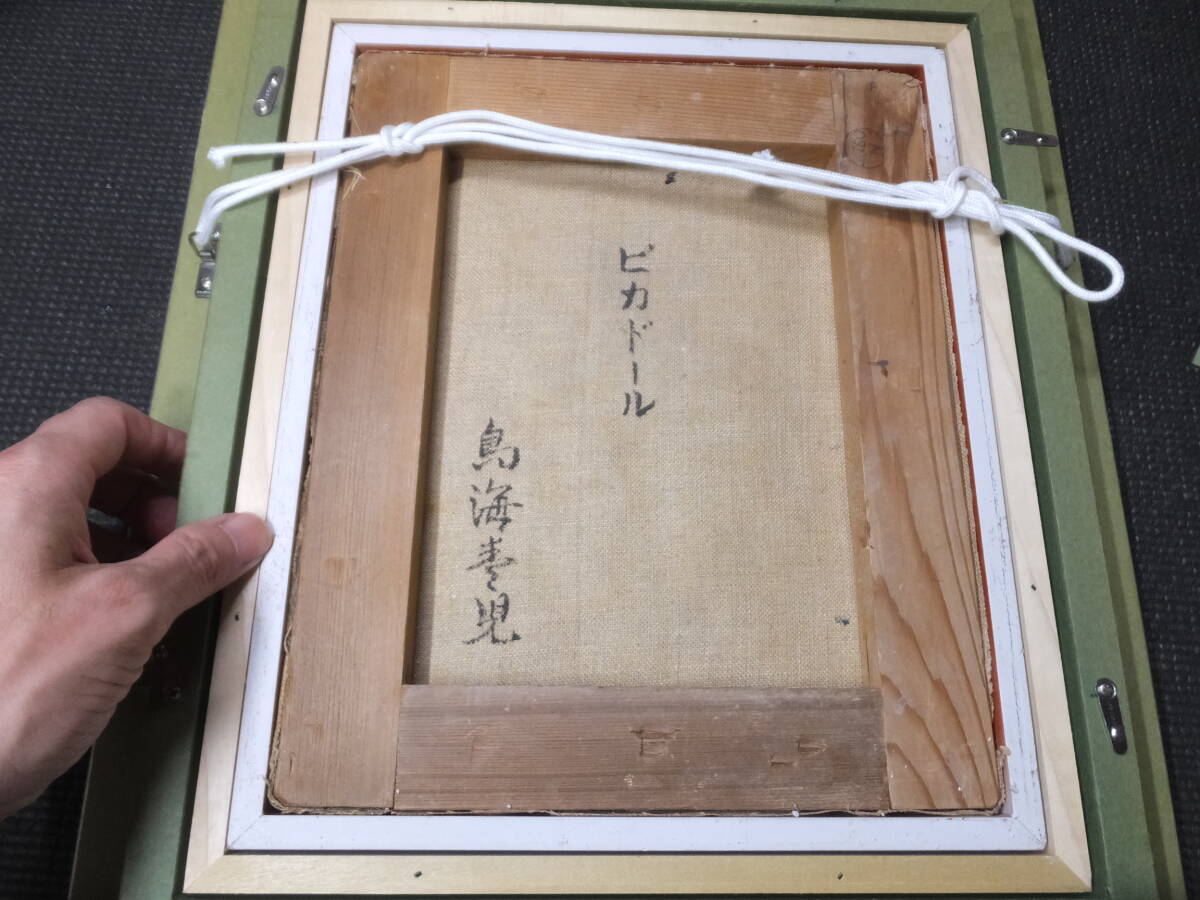 ピカドール
鳥海青児